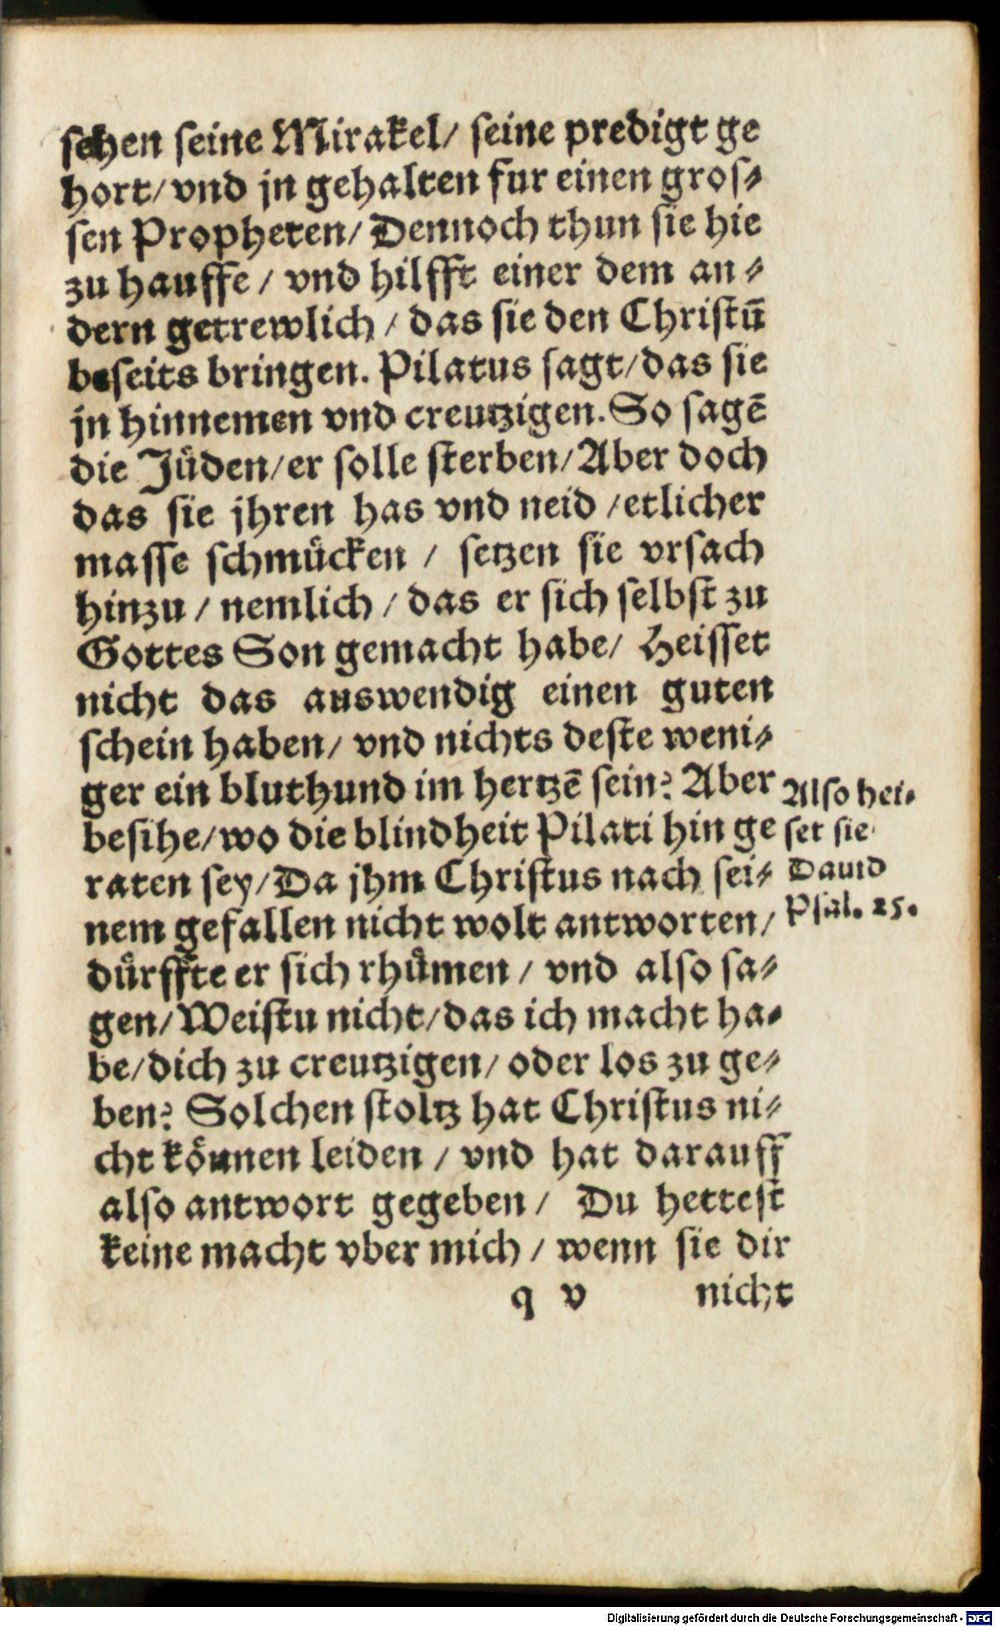 sehen seine Mirakel/ seine predigt ge
hort/ vnd jn gehalten fur einen gros⸗
sen Propheten/ Dennoch thun sie hie
zu hauffe / vnd hilfft einer dem an⸗
dern getrewlich / das sie den Christū
beseits bringen. Pilatus sagt/ das sie
jn hinnemen vnd creutzigen. So sagē
die Jüden/ er solle sterben/ Aber doch
das sie jhren has vnd neid / etlicher
masse schmücken / setzen sie vrsach
hinzu / nemlich / das er sich selbst zu
Gottes Son gemacht habe/ Heisset
nicht das auswendig einen guten
schein haben/ vnd nichts deste weni⸗
ger ein bluthund im hertzē sein? Aber
besihe/ wo die blindheit Pilati hin ge
raten sey/ Da jhm Christus nach sei⸗
nem gefallen nicht wolt antworten/
dürffte er sich rhümen / vnd also sa⸗
gen/ Weistu nicht/ das ich macht ha⸗
be/ dich zu creutzigen/ oder los zu ge⸗
ben? Solchen stoltz hat Christus ni⸗
cht können leiden / vnd hat darauff
also antwort gegeben / Du hettest
keine macht vber mich / wenn sie dir
q v nicht
Also hei⸗
set sie
Dauid
Psal. 25.
Digitalisierung gefördert durch die Deutsche Forschungsgemeinschaft - DFG